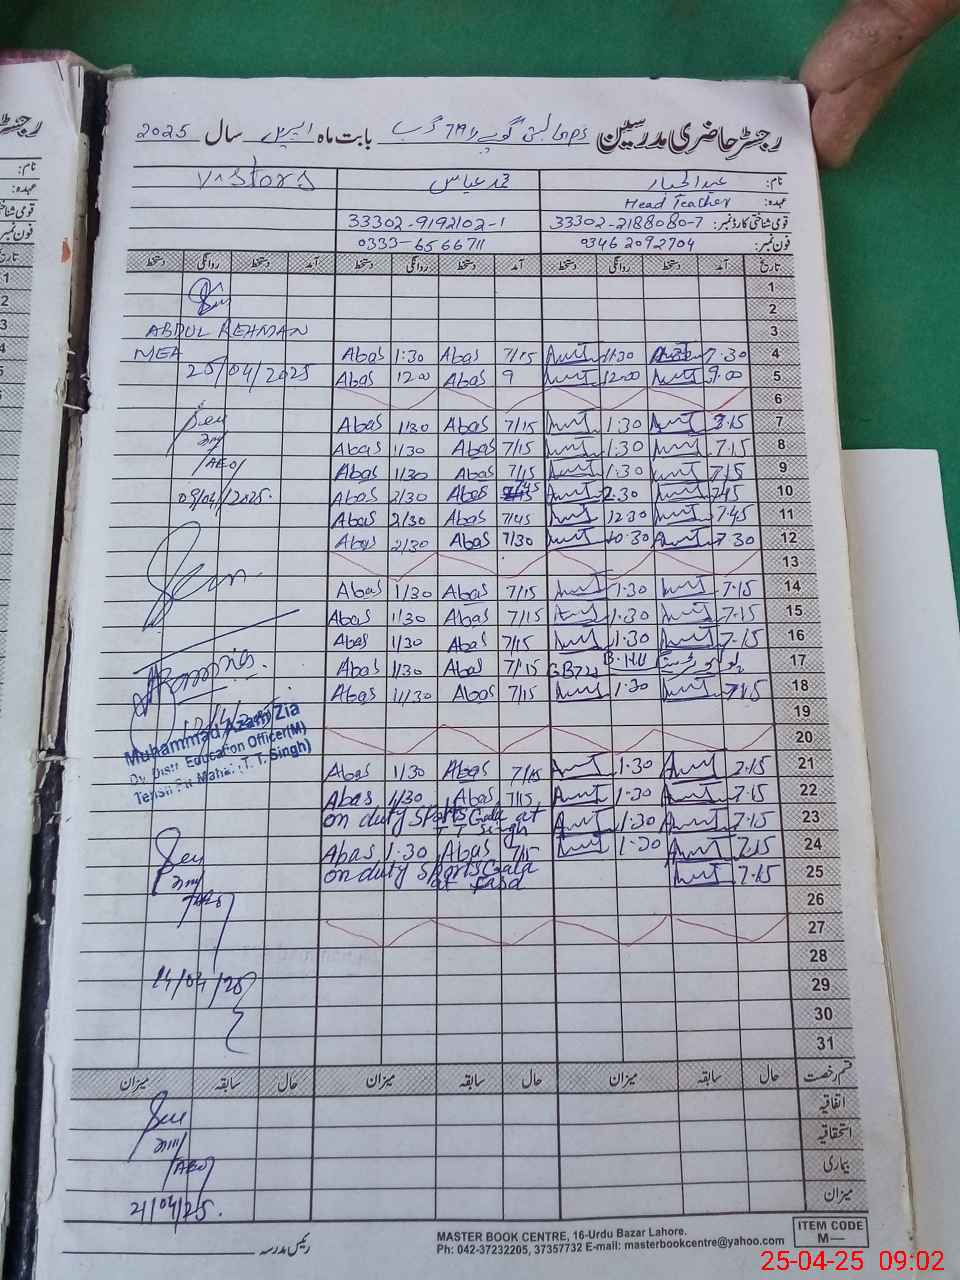 رجسٹر حاضری مدرسین GPS بستی گوپے را 741 گ ب بابت ماہ اپریل سال 2025
نام: عبدالجبار محمد عباس VISITORS
عہدہ: Head Teacher
قومی شناختی کارڈ نمبر: 33302-2188080-7 33302-9192102-1
فون نمبر: 0346 2092704 0333-6566711
تاریخ آمد دستخط روانگی دستخط آمد دستخط روانگی دستخط آمد دستخط روانگی دستخط
1
2
3 ABDUL REHMAN
4 7.30 11:30 7/15 Abas 1:30 Abas MEA
5 9.00 12.00 9 Abas 12.00 Abas 25/04/2025
6
7 7.15 1.30 7/15 Abas 1/30 Abas
8 7.15 1.30 7/15 Abas 1/30 Abas
9 7.15 1.30 7/15 Abas 1/30 Abas /AEO/
10 7.45 2.30 7/45 Abas 2/30 Abas 09/04/2025.
11 7.45 12.30 7/45 Abas 2/30 Abas
12 7.30 7/30 Abas 2/30 Abas
13
14 7.15 1.30 7/15 Abas 1/30 Abas
15 7.15 1.30 7/15 Abas 1/30 Abas
16 7.15 1.30 7/15 Abas 1/30 Abas
17 پولیو ڈیوٹی B.HU GB722 7/15 Abas 1/30 Abas
18 7.15 1.30 7/15 Abas 1/30 Abas
19
20
Muhammad Azam Zia
Dy. Distt. Education Officer(M)
Tehsil Pir Mahal (T.T.Singh)
21 7.15 1.30 7/15 Abas 1/30 Abas
22 7.15 1.30 7/15 Abas 1/30 Abas
23 7.15 1.30 on duty Sports Gala at T T Singh
24 7.15 1.30 7/15 Abas 1.30 Abas
25 7.15 on duty Sports Gala at Fasd
26
27
28
29 14/04/25
30
31
قسم رخصت حال سابقہ میزان حال سابقہ میزان حال سابقہ میزان
اتفاقیہ
استحقاقیہ
بیماری /AEO/
میزان 21/04/25.
رئیس مدرسہ
MASTER BOOK CENTRE, 16-Urdu Bazar Lahore.
Ph: 042-37232205, 37357732 E-mail: masterbookcentre@yahoo.com
ITEM CODE
M—
25-04-25 09:02